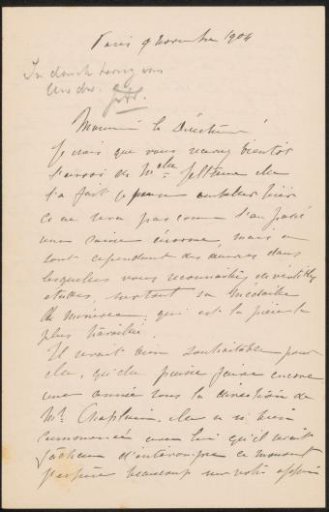 Paris 9 Novembre 1904
In dank terug van
Monsieur le Directeur
Je sais que vous recevez bientôt
l'envoi de Mlle Jeltema elle
l'a fait
ce ne sera pas comme l'an passé
une caisse énorme, mais
sont cependant des œuvres dans
lesquelles vous reconnaîtrez de véritables
études, surtout sa médaille
de Monsieur, qui est la pièce la
plus travaillée.
Il serait bien souhaitable pour
elle, qu'elle puisse faire encore
une année sous la direction de
Mr. Chaplain, elle a si bien
commencé avec lui qu'il serait
fâcheux d'interrompre ce moment
j'espère beaucoup sur votre appui